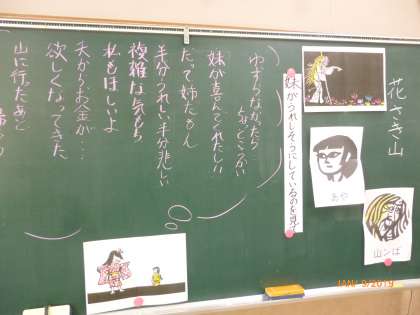 花さき山
あや
山ンば
妹がうれしそうにしているのを見て
ゆずらなかったら
妹が喜んでくれたしい
だって姉だもん
半分うれしい、半分悲しい
複雑な気もち
私もほしいよ
夫からお金が…
欲しくなってきた
山に行ったあと